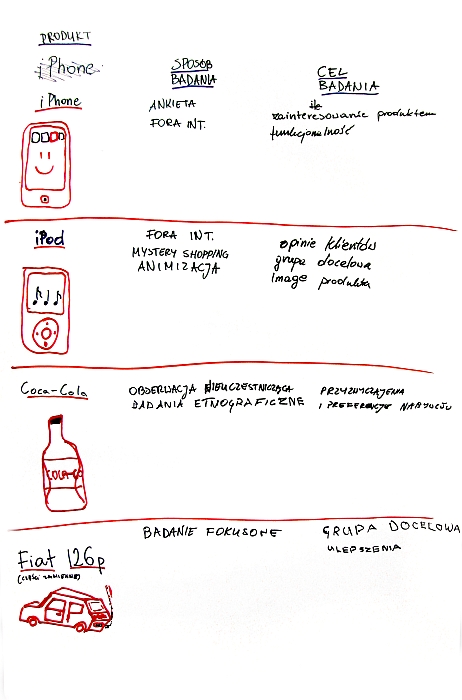 PRODUKT
iPhone
SPOSÓB
BADANIA
CEL
BADANIA
iPhone
ANKIETA
FORA INT.
zainteresowanie produktem
funkcjonalność
iPod
FORA INT.
MYSTERY SHOPPING
ANIMIZACJA
opinie klientów
grupa docelowa
image produktu
Coca-Cola
OBSERWACJA NIEUCZESTNICZĄCA
BADANIA ETNOGRAFICZNE
PRZYZWYCZAJENIA
I PREFERENCJE NABYWCÓW
COCA-CO
BADANIE FOKUSOWE
GRUPA DOCELOWA
ULEPSZENIA
Fiat 126p
(CZĘŚCI ZAMIENNE)